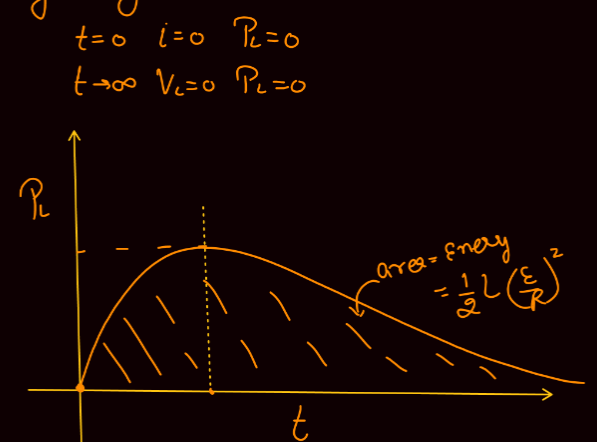 t=0 i=0 P_L=0
t→∞ V_L=0 P_L=0
P_L
area = Enery
= 1/2 L (ε/R)^2
t